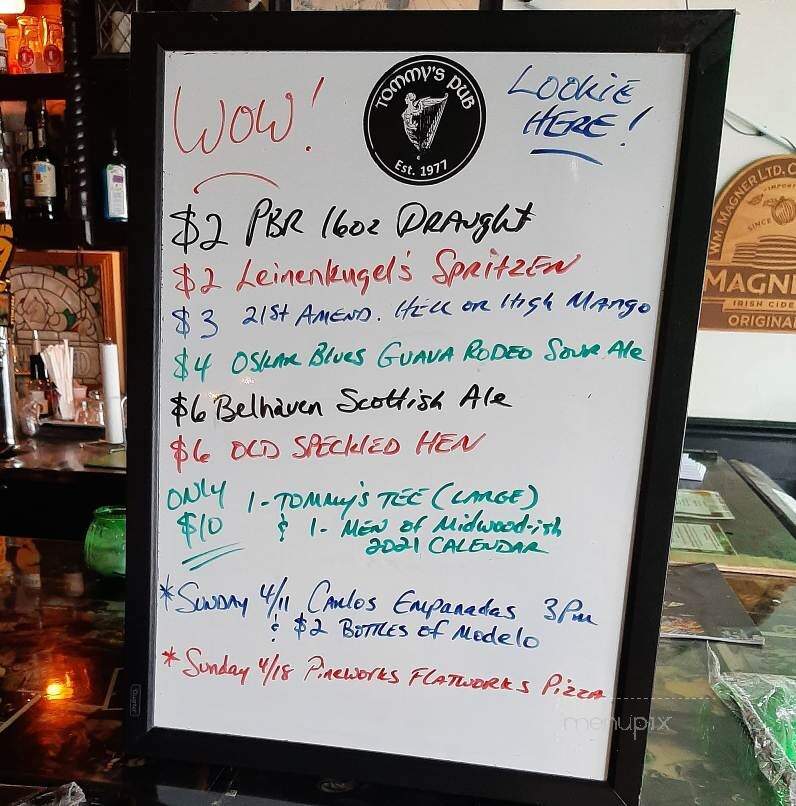 WOW!
TOMMY'S PUB
Est. 1977
LOOKIE
HERE!
$2 PBR 16oz DRAUGHT
$2 Leinenkugel's SPRITZEN
$3 21St AMEND. HELL OR HIGH MANGO
$4 OSKAR BLUES GUAVA RODEO SOUR Ale
$6 Belhaven Scottish Ale
$6 OLD SPECKLED HEN
ONLY 1-TOMMY'S TEE (LARGE)
$10 & 1- MEN of Midwood-ish
2021 CALENDAR
*SUNDAY 4/11 CARLOS EMPANADAS 3Pm
& $2 BOTTLES of Modelo
*Sunday 4/18 PineWorks FLATWORKS PIZZA
WM MAGNER LTD. C
IMPOR
SINCE
MAGN
IRISH CIDE
ORIGINA
menupix